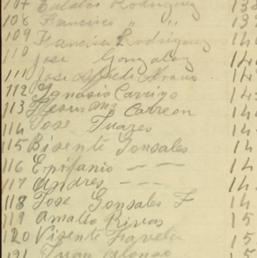 107 Eulalio Rodriguez 13
108 Francisco " " 13
109 Francisco Rodriguez 14
110 Jose Gonzalez 14
111 Jose 14
112 Ignasio Carrigo 14
113 Carreon 14
114 Jose Juares 14
115 Bisente Gonsales 14
116 Epifanio — — 14
117 Andres — — — 14
118 Jose Gonsales F 14
119 Amalio Rivas 15
120 Visente Favela 15
121 Juan Alonso 15